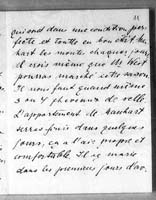 11
qui sont dans une condition par-
faite et toutte en bon état. Mr
hart les monte chaques jour,
je crois même que Mr West
pourras marché cette saison.
Il nous faut quand même
3 ou 4 chevaux de selle
l'appartement de Manhart
serras finis dans quelques
jours, ça a l'air propre et
confortable. Il se marie
dans les premiers jours d'av.